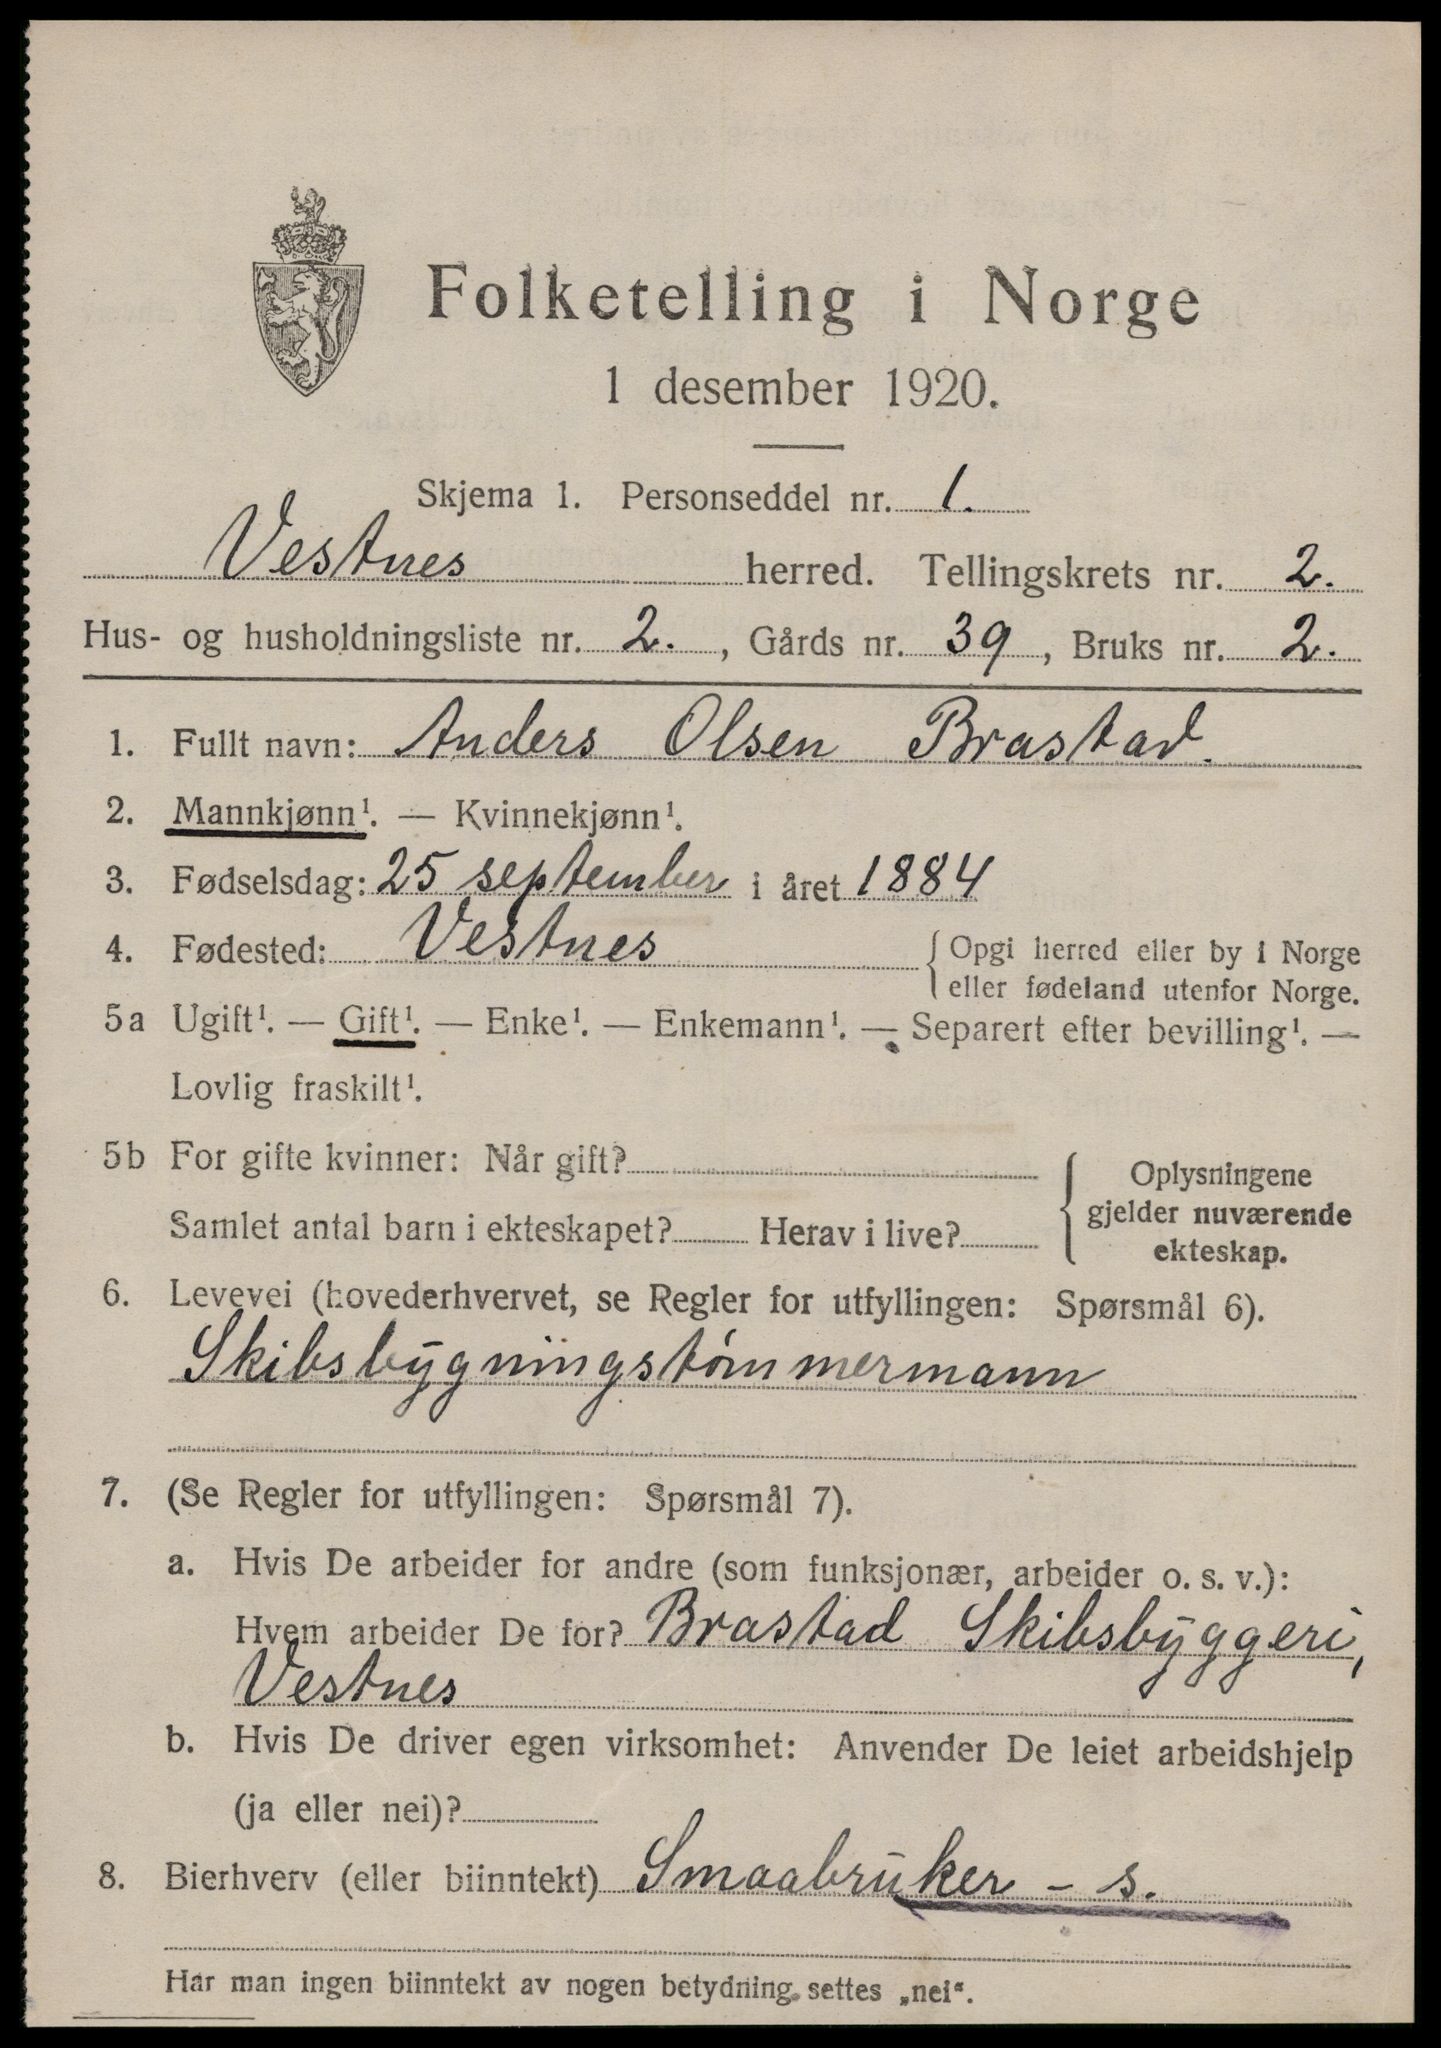 Folketelling i Norge
1 desember 1920.
Skjema 1. Personseddel nr. 1.
Vestnes herred. Tellingskrets nr. 2.
Hus- og husholdningsliste nr. 2. , Gårds nr. 39 , Bruks nr. 2.
1. Fullt navn: Anders Olsen Brastad.
2. Mannkjønn¹. — Kvinnekjønn¹.
3. Fødselsdag: 25 september i året 1884
4. Fødested: Vestnes { Opgi herred eller by i Norge
eller fødeland utenfor Norge.
5a Ugift¹. — Gift¹. — Enke¹. — Enkemann¹. — Separert efter bevilling¹. —
Lovlig fraskilt¹.
5b For gifte kvinner: Når gift?
Samlet antal barn i ekteskapet? Herav i live?
{ Oplysningene
gjelder nuværende
ekteskap.
6. Levevei (hovederhvervet, se Regler for utfyllingen: Spørsmål 6).
Skibsbygningstømmermann
7. (Se Regler for utfyllingen: Spørsmål 7).
a. Hvis De arbeider for andre (som funksjonær, arbeider o. s. v.):
Hvem arbeider De for? Brastad Skibsbyggeri,
Vestnes
b. Hvis De driver egen virksomhet: Anvender De leiet arbeidshjelp
(ja eller nei)?
8. Bierhverv (eller biinntekt) Smaabruker - s.
Har man ingen biinntekt av nogen betydning settes „nei“.